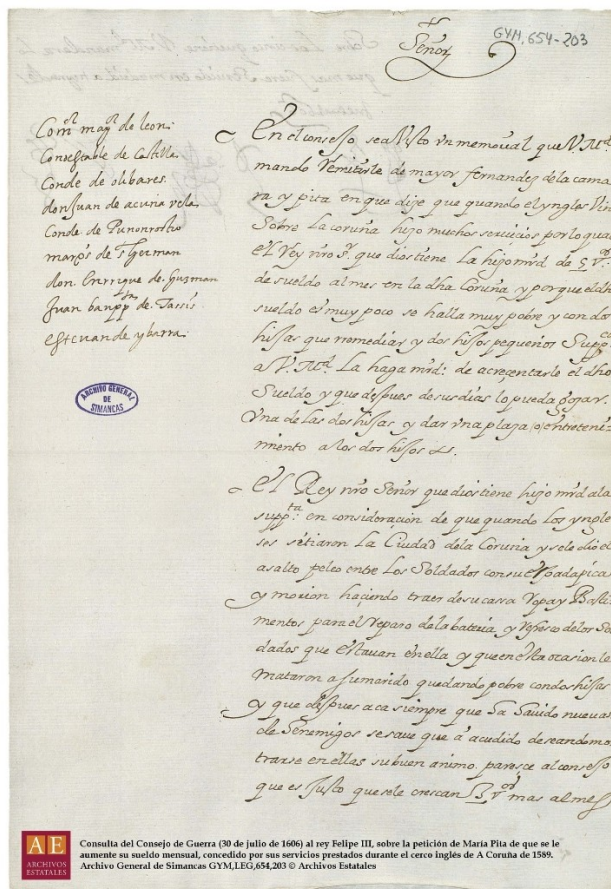 Señor
GYM, 654-203
Com.r may.or de leon.
Condestable de Castilla.
Conde de olibares.
don Juan de acuña vela.
Conde de Punonrostro
marq.s de S. German
don. Enrrique de Guzman
Juan bap.ta de. Tassis.
esteuan de ybarra.
ARCHIVO GENERAL
DE
SIMANCAS
En el conssejo, sea Visto vn memorial que V. M.d
mando Remitirle de mayor fernandez de la cama
ra y pita en que dize que quando el yngles vin
Sobre La coruña hizo muchos seruicios por lo qual
el Rey nro s.r que dios tiene. La hizo mrd de 5
de sueldo al mes en la dha Coruña y porque el dh
sueldo es muy poco se halla muy pobre y con dos
hijas que Remediar y dos hijos pequeños Supp.ca
a V. M.d La haga mrd: de acreçentarle el dho
Sueldo y que despues de sus dias lo pueda goçar.
Vna de las dos hijas y dar vna plaza, o, entreteni
miento a los dos hijos
El Rey nro Señor que dios tiene hizo mrd a la
supp.ta en consideraçion de que quando Los yngle
ses sitiaron La Ciudad de la Coruña y se le dio el
asalto peleo entre Los Soldados con su espada pica
y morion haçiendo traer de su cassa Ropa y Basti
mentos para el Reparo de la bateria y Refresco de los So
dados que estauan en ella y que en esta ocasion le
mataron a su marido quedando pobre con dos hijas
y que despues aca siempre que ha hauido nueuas
de Enemigos se saue que a acudido deseando mos
trarse en ellas su buen animo. paresce al conssejo
que es Justo que se le crescan mas al mes
AE
ARCHIVOS
ESTATALES
Consulta del Consejo de Guerra (30 de julio de 1606) al rey Felipe III, sobre la petición de María Pita de que se le
aumente su sueldo mensual, concedido por sus servicios prestados durante el cerco inglés de A Coruña de 1589.
Archivo General de Simancas GYM,LEG,654,203 © Archivos Estatales